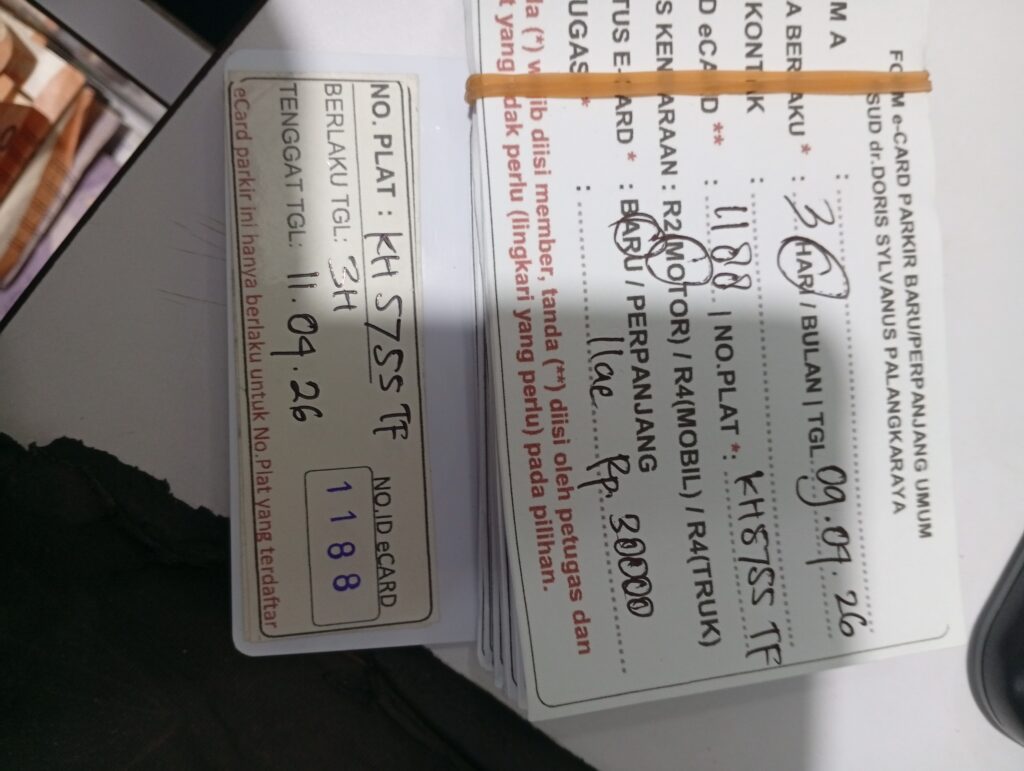 e-CARD PARKIR BARU/PERPANJANG UMUM
SUD dr.DORIS SYLVANUS PALANGKARAYA
M A :
A BER AKU * : 3 HARI / BULAN | TGL. 09.04.26
KONT K :
D eCA D ** : 1188 | NO.PLAT *: KH8755 TF
S KEN ARAAN : R2(MOTOR) / R4(MOBIL) / R4(TRUK)
TUS E- ARD * : BARU / PERPANJANG
UGAS * : Rp. 30000
da (*) w ib diisi member, tanda (**) diisi oleh petugas dan
t yang dak perlu (lingkari yang perlu) pada pilihan.
NO. PLAT : KH 5755 TF
BERLAKU TGL: 3H
TENGGAT TGL: 11.04.26
NO.ID eCARD
1188
eCard parkir ini hanya berlaku untuk No.Plat yang terdaftar